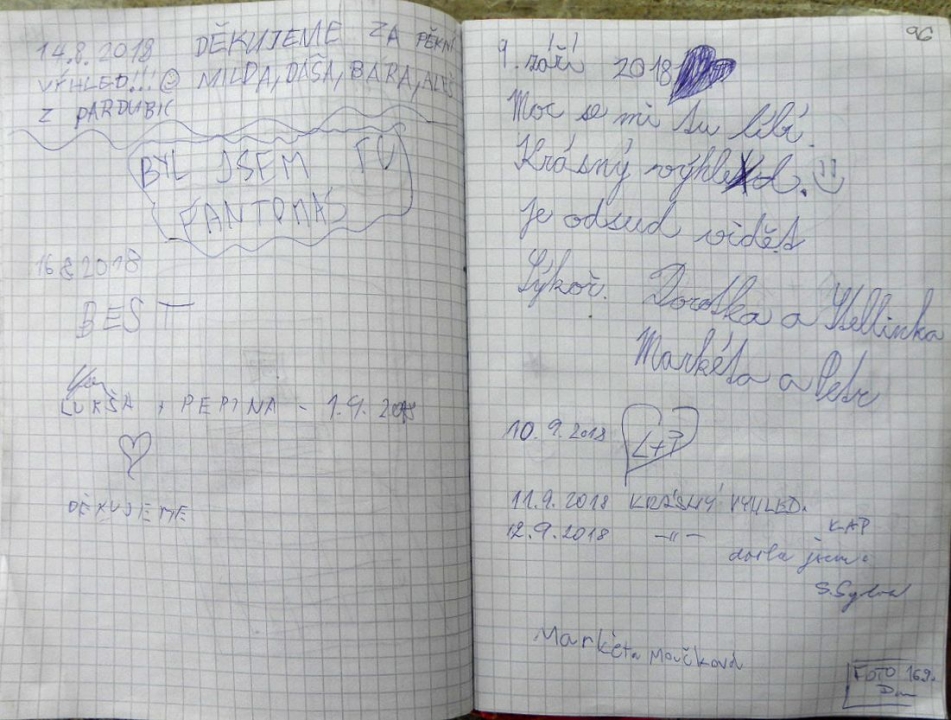 14.8.2018 DĚKUJEME ZA PĚKNÝ
VÝHLED!!! ☺ MILDA, DÁŠA, BÁRA, ALEŠ
Z PARDUBIC
BYL JSEM TU
FANTOMAS
16.8.2018
BEST
LUKŠA + PEPINA - 1.9. 2018
♡
DĚKUJEME
96
9. září 2018
Moc se mi tu líbí.
Krásný výhled.
je odsud vidět
Sýkoř. Dorotka a Hellinka
Markéta a Petr
10.9.2018 L+P
11.9.2018 KRÁSNÝ VÝHLED.
K+P
12.9.2018 -"-
došla jsem.
S.
Markéta
FOTO 16.9.